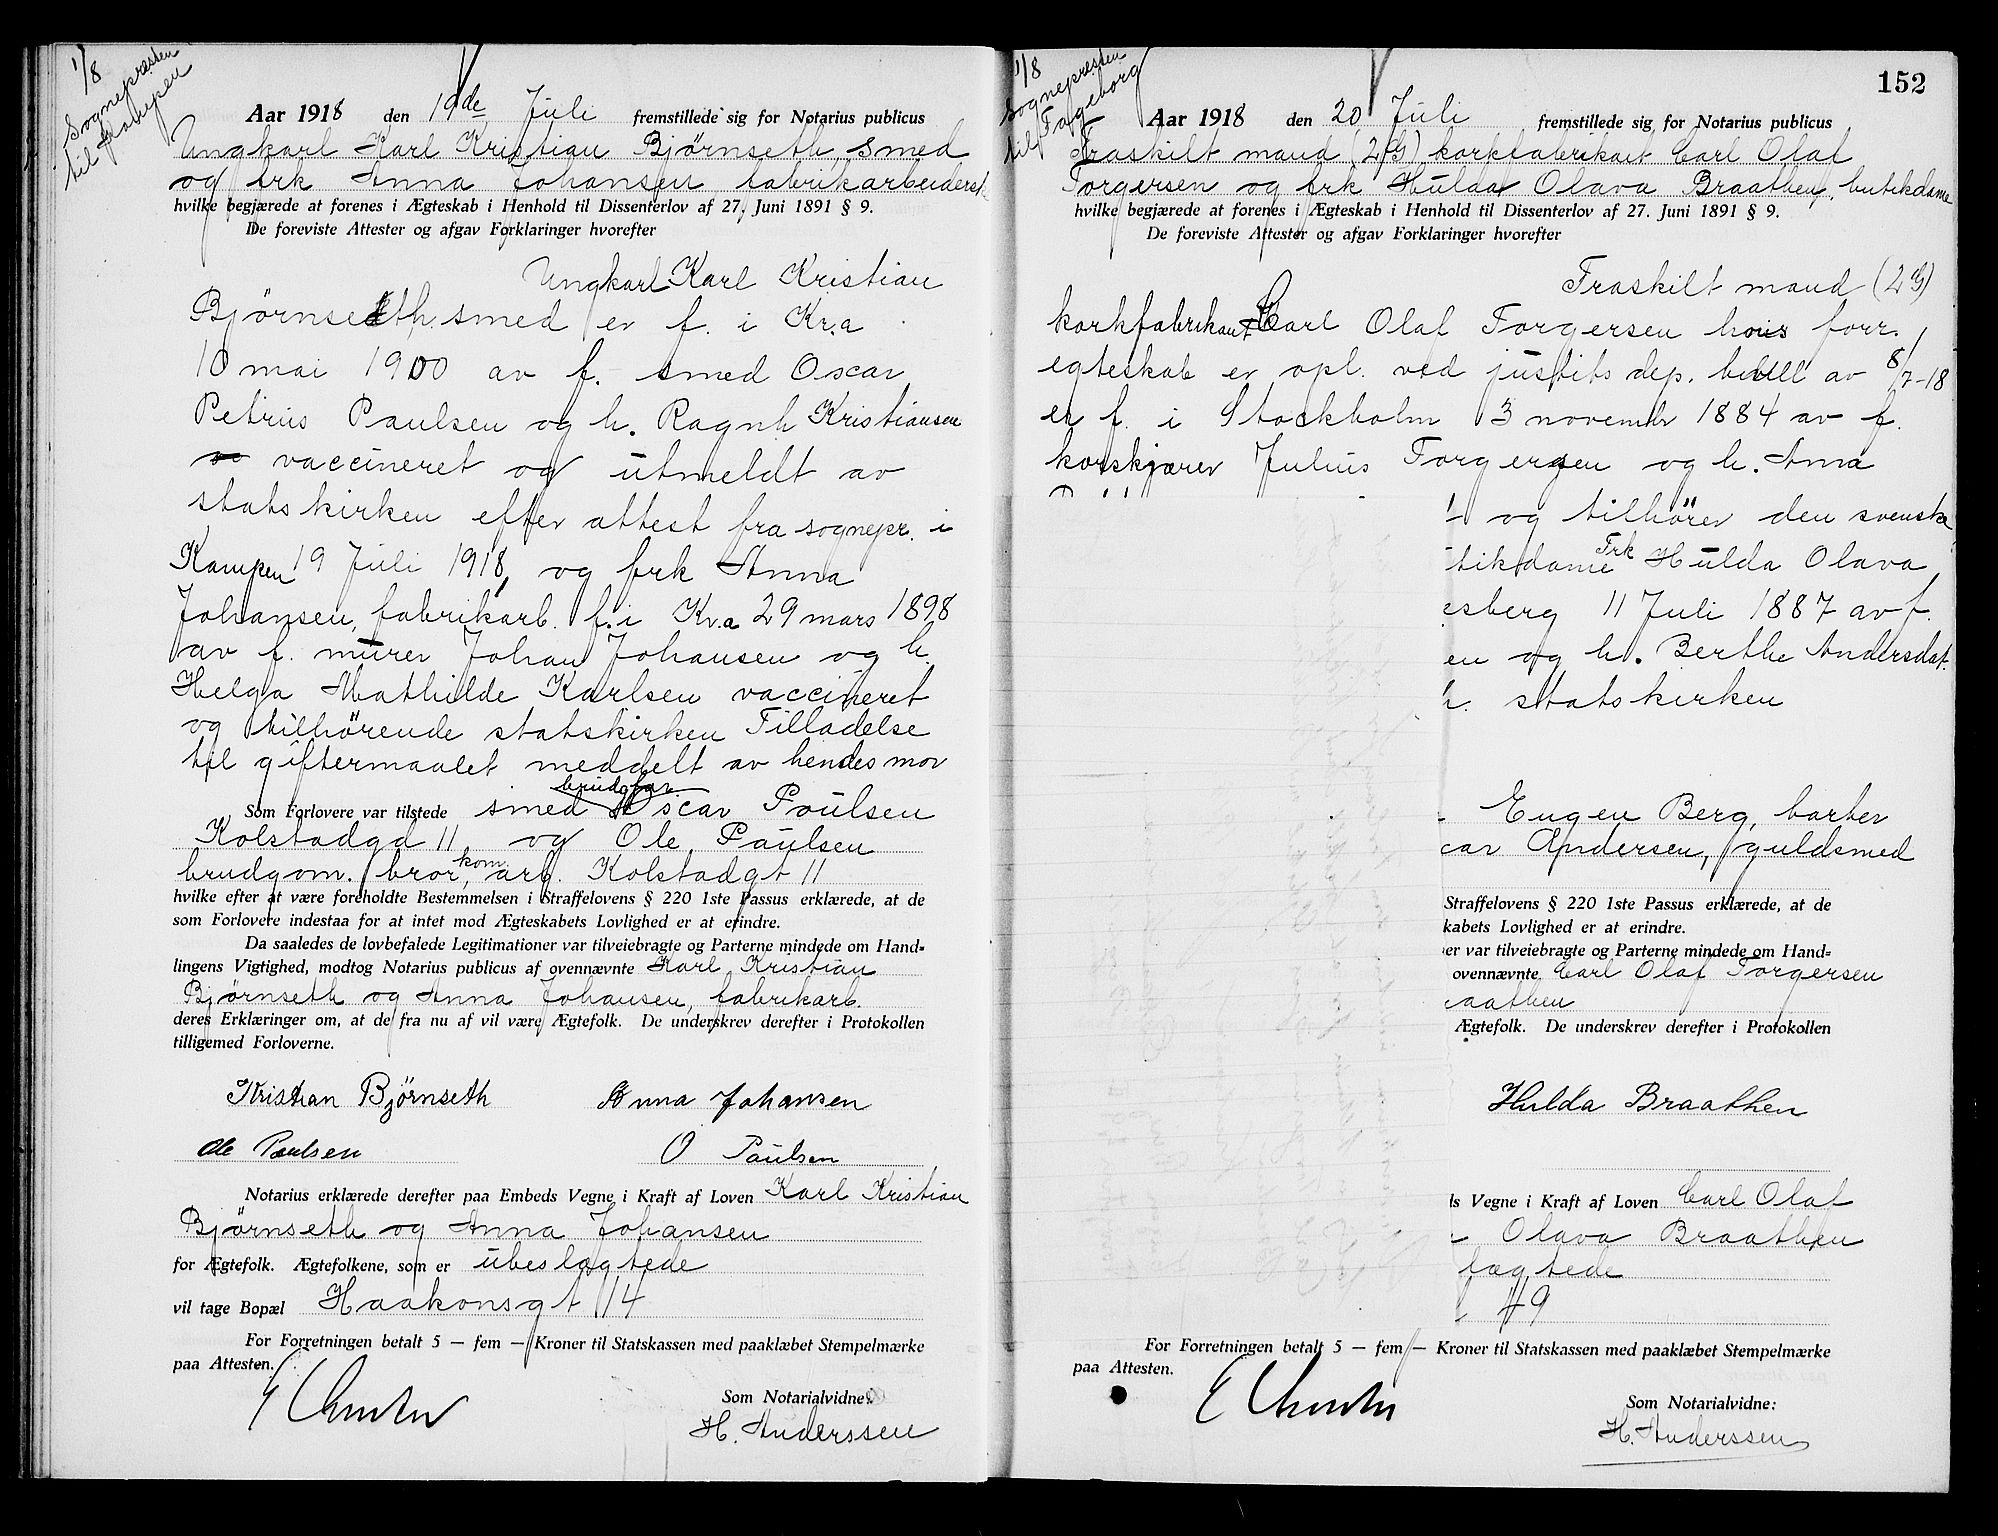 1/8
Sognepresten
til Kampen
Aar 1918 den 19de Juli fremstillede sig for Notarius publicus
Ungkarl Karl Kristian Bjørnseth, smed
og frk Anna Johansen, fabrikarbeiderske
hvilke begjærede at forenes i Ægteskab i Henhold til Dissenterlov af 27. Juni 1891 § 9.
De foreviste Attester og afgav Forklaringer hvorefter
Ungkarl Karl Kristian
Bjørnseth, smed er f. i Kr.a
10 mai 1900 av f. smed Oscar
Petrus Paulsen og h. Ragnh Kristiansen
vaccineret og utmeldt av
statskirken efter attest fra sognepr. i
Kampen 19 Juli 1918, og frk Anna
Johansen, fabrikarb. f. i Kr.a 29 mars 1898
av f. murer Johan Johansen og h.
Helga Mathilde Karlsen vaccineret
og tilhörende statskirken Tilladelse
til giftermaalet meddelt av hendes mor
brudg far
Som Forlovere var tilstede smed Oscar Poulsen
Kolstadgd 11 og Ole Paulsen
brudgom. bror, kom. arb. Kolstadgt 11
hvilke efter at være foreholdte Bestemmelsen i Straffelovens § 220 1ste Passus erklærede, at de
som Forlovere indestaa for at intet mod Ægteskabets Lovlighed er at erindre.
Da saaledes de lovbefalede Legitimationer var tilveiebragte og Parterne mindede om Hand-
lingens Vigtighed, modtog Notarius publicus af ovennævnte Karl Kristian
Bjørnseth og Anna Johansen, fabrikarb.
deres Erklæringer om, at de fra nu af vil være Ægtefolk. De underskrev derefter i Protokollen
tilligemed Forloverne.
Kristian Bjørnseth Anna Johansen
Ole Paulsen O Paulsen
Notarius erklærede derefter paa Embeds Vegne i Kraft af Loven Karl Kristian
Bjørnseth og Anna Johansen
for Ægtefolk. Ægtefolkene, som er ubeslægtede
vil tage Bopæl Haakonsgt 14
For Forretningen betalt 5 — fem — Kroner til Statskassen med paaklæbet Stempelmærke
paa Attesten.
Som Notarialvidne:
H. Anderssen
152
1/8
Sognepresten
til Fageborg
Aar 1918 den 20 Juli fremstillede sig for Notarius publicus
Fraskilt mand (2 G) korkfabrikant Carl Olaf
Torgersen og frk Hulda Olava Braathen, butikdame
hvilke begjærede at forenes i Ægteskab i Henhold til Dissenterlov af 27. Juni 1891 § 9.
De foreviste Attester og afgav Forklaringer hvorefter
Fraskilt mand (2 G)
korkfabrikant Carl Olaf Torgersen hvis forr.
egteskab er opl. ved justits dep. bevill av 8/7-18
er f. i Stockholm 3 novembr 1884 av f.
korkskjærer Julius Torgersen og h. Anna
og tilhörer den svenske
tikdame Frk Hulda Olava
esberg 11 Juli 1887 av f.
en og h. Berthe Andersdat.
statskirken
Eugen Berg, barber
car Andersen, guldsmed
Straffelovens § 220 1ste Passus erklærede, at de
kabets Lovlighed er at erindre.
er var tilveiebragte og Parterne mindede om Hand-
ovennævnte Carl Olaf Torgersen
aathen
Ægtefolk. De underskrev derefter i Protokollen
Hulda Braathen
ds Vegne i Kraft af Loven Carl Olaf
Olava Braathen
lægtede
49
For Forretningen betalt 5 — fem — Kroner til Statskassen med paaklæbet Stempelmærke
paa Attesten.
Som Notarialvidne:
H. Anderssen